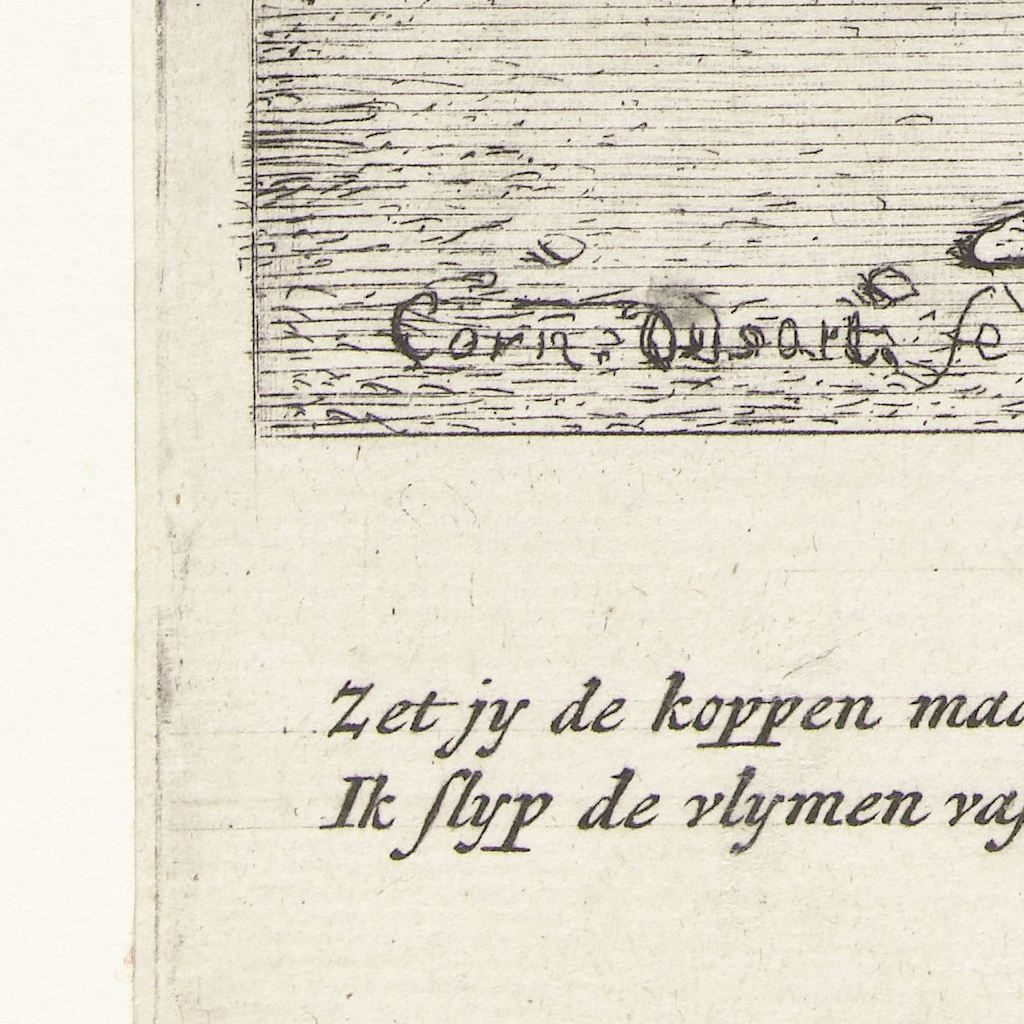 Corn: Dusart. fe
Zet jy de koppen maa
Ik ſlyp de vlymen vaſ